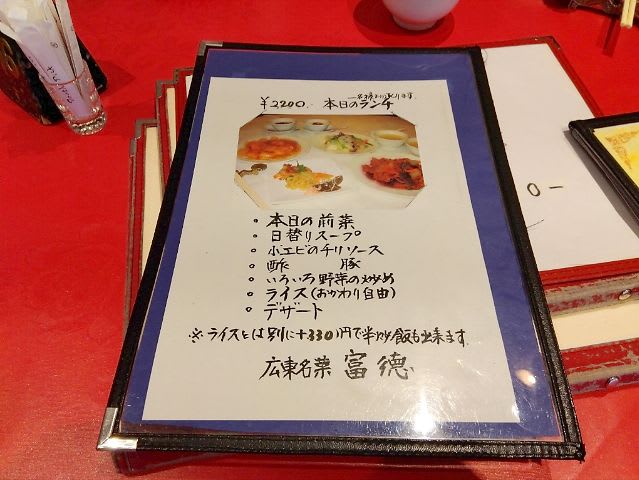 一名様より承ります
¥2200.- 本日のランチ
・本日の前菜
・日替りスープ
・小エビのチリソース
・酢豚
・いろいろ野菜の炒め
・ライス(おかわり自由)
・デザート
※ライスとは別に+330円で半炒飯も出来ます。
広東名菜 富徳
0-